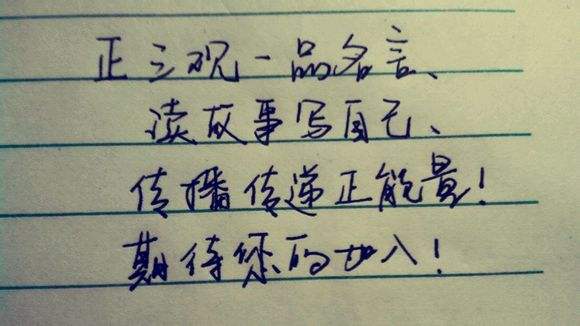 正三观一品名言、
读故事写自己、
传播传递正能量！
期待您的加入！